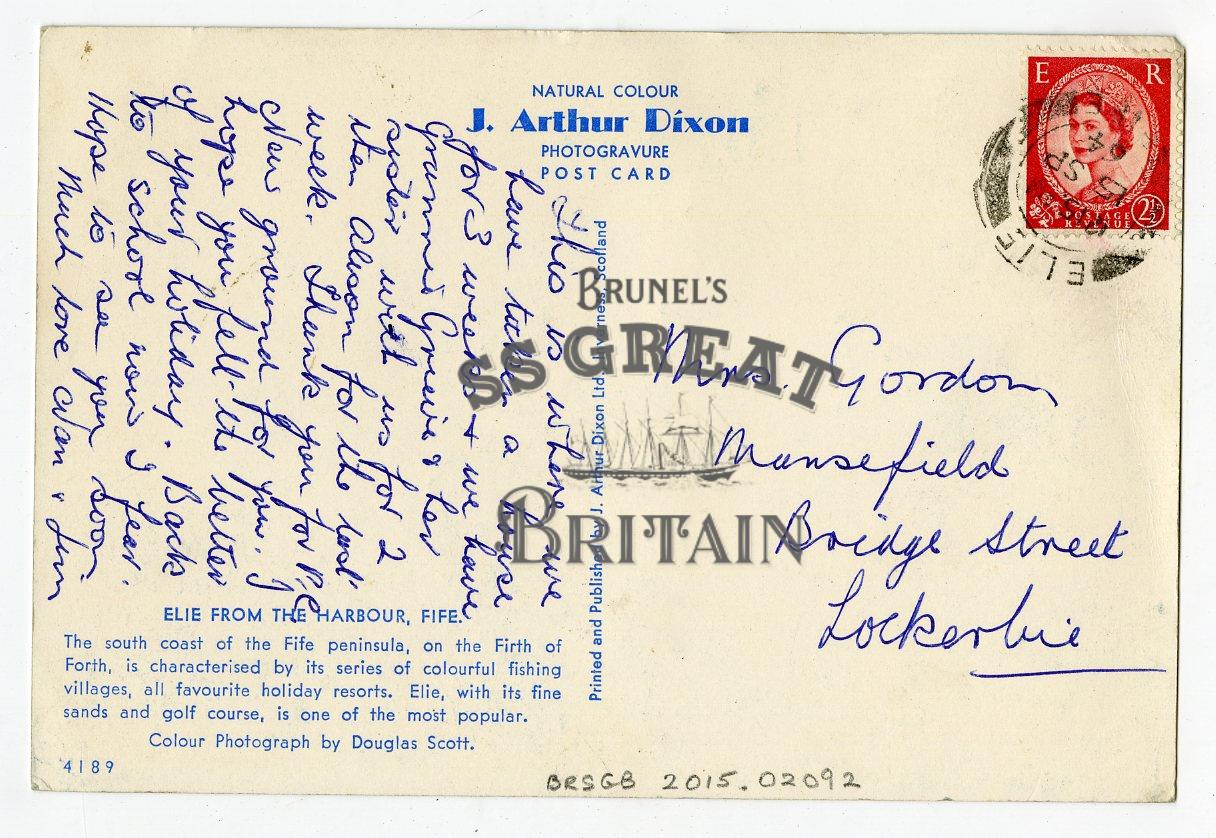 NATURAL COLOUR
J. Arthur Dixon
PHOTOGRAVURE
POST CARD
This is where we
have taken a house
for 3 weeks + we have
Grannie Grieve & her
sister with us for 2
then Alison for the last
week. Thank you for P.C
New ground for you. I
hope you feel the better
of your holiday. Back
to school now I fear.
Hope to see you soon
Much love Nan & Jim
ELIE FROM THE HARBOUR, FIFE.
The south coast of the Fife peninsula, on the Firth of
Forth, is characterised by its series of colourful fishing
villages, all favourite holiday resorts. Elie, with its fine
sands and golf course, is one of the most popular.
Colour Photograph by Douglas Scott.
4189
Printed and Published by J. Arthur Dixon Ltd., Inverness, Scotland
E R
POSTAGE
REVENUE
2½
ELIE
SP
64
Mrs. Gordon
Mansefield
Bridge Street
Lockerbie
BRUNEL'S
SS GREAT
BRITAIN
BRSGB 2015.02092